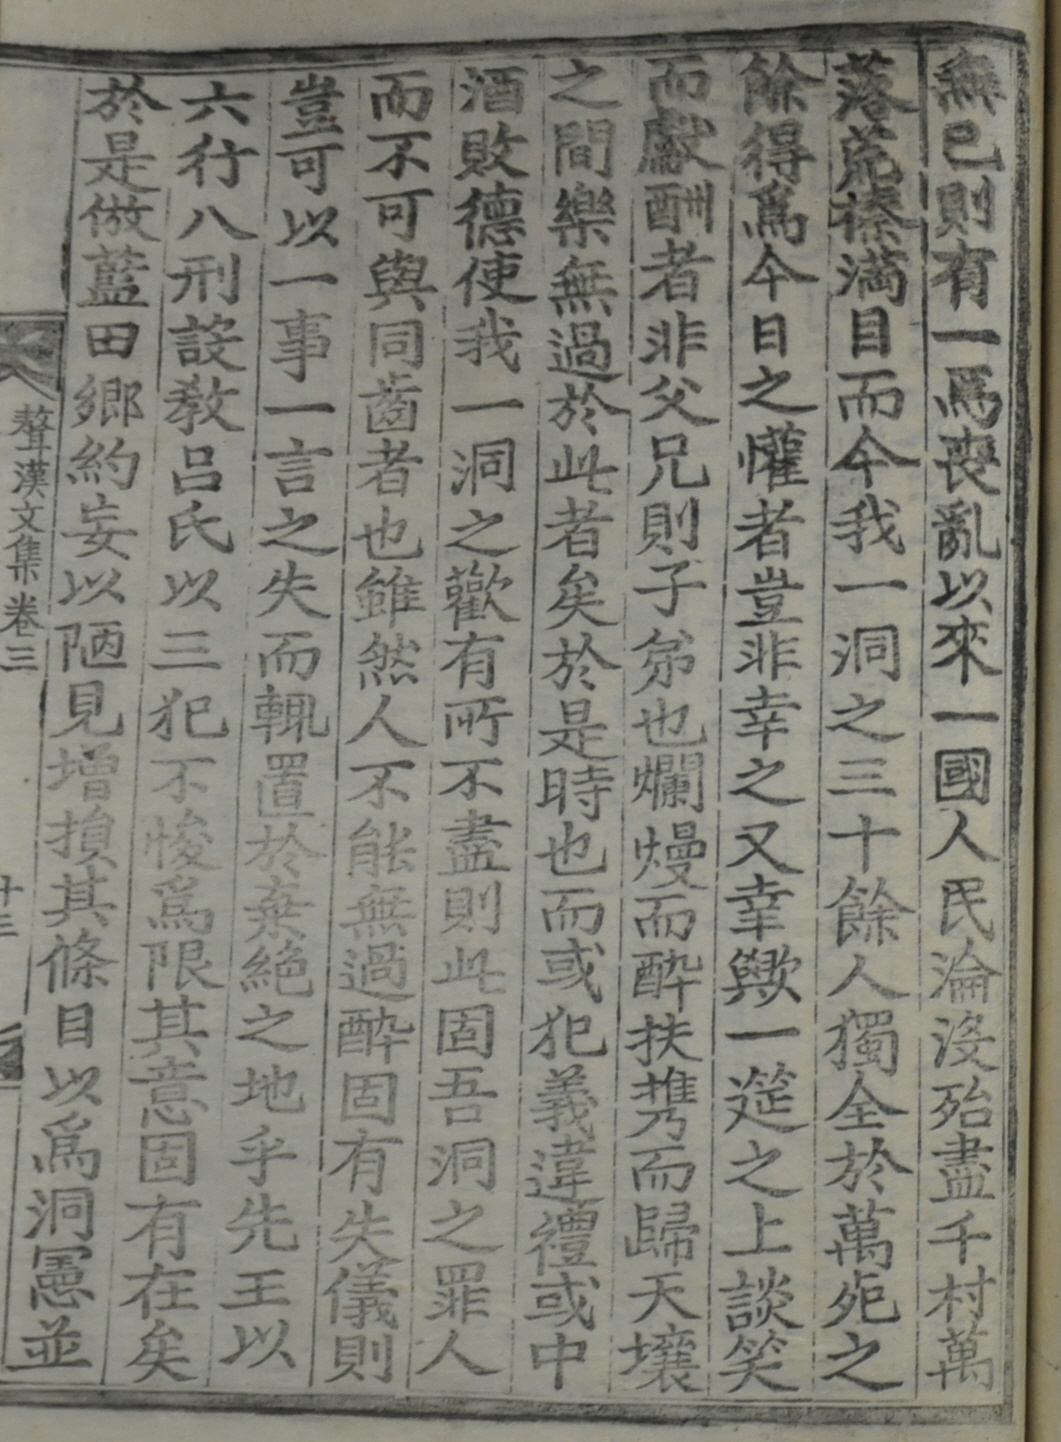 無已則有一爲喪亂以來一國人民淪沒殆盡千村萬
落荒榛滿目而今我一洞之三十餘人獨全於萬死之
餘得爲今日之懽者豈非幸之又幸歟一筵之上談笑
而獻酬者非父兄則子弟也爛熳而醉扶携而歸天壤
之間樂無過於此者矣於是時也而或犯義違禮或中
酒敗德使我一洞之歡有所不盡則此固吾洞之罪人
而不可與同齒者也雖然人不能無過醉固有失儀則
豈可以一事一言之失而輒置於棄絕之地乎先王以
六行八刑設敎呂氏以三犯不悛爲限其意固有在矣
於是倣藍田鄕約妄以陋見增損其條目以爲洞憲並
聱漢文集卷三
十三